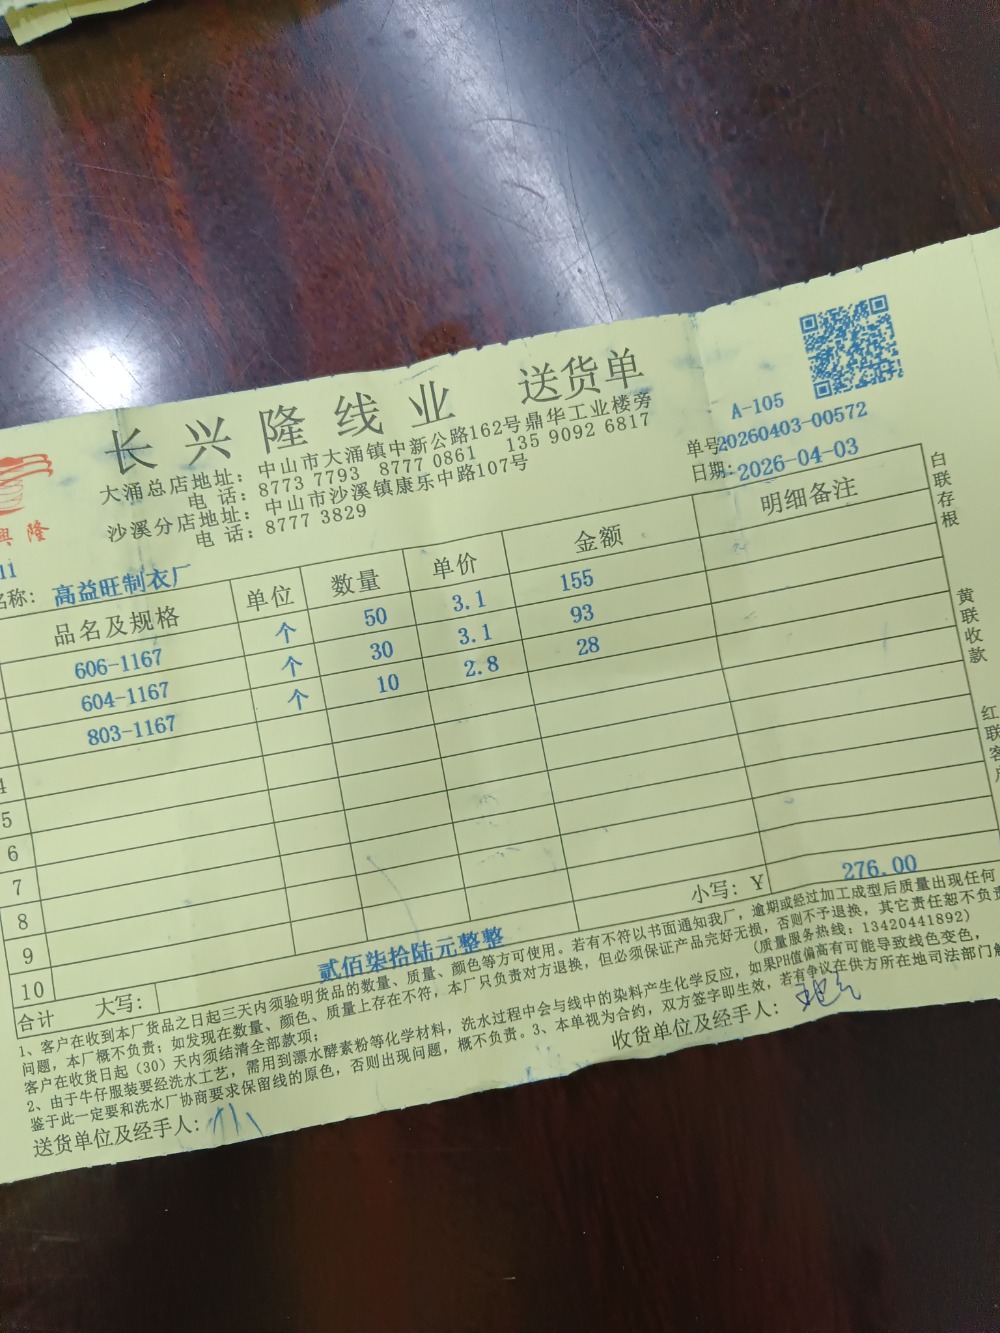 长兴隆线业 送货单
大涌总店地址：中山市大涌镇中新公路162号鼎华工业楼旁
电 话：8773 7793 8777 0861 135 9092 6817
沙溪分店地址：中山市沙溪镇康乐中路107号
电 话：8777 3829
A-105
单号 20260403-00572
日期：2026-04-03
興隆
11
名称：高益旺制衣厂
品名及规格 单位 数量 单价 金额 明细备注
606-1167 个 50 3.1 155
604-1167 个 30 3.1 93
803-1167 个 10 2.8 28
4
5
6
7
8
9
10
合计 大写：贰佰柒拾陆元整整 小写：¥ 276.00
1、客户在收到本厂货品之日起三天内须验明货品的数量、质量、颜色等方可使用。若有不符以书面通知我厂，逾期或经过加工成型后质量出现任何
问题，本厂概不负责；如发现在数量、颜色、质量上存在不符，本厂只负责对方退换，但必须保证产品完好无损，否则不予退换，其它责任恕不负责
客户在收货日起（30）天内须结清全部款项； （质量服务热线：13420441892）
2、由于牛仔服装要经洗水工艺，需用到漂水酵素粉等化学材料，洗水过程中会与线中的染料产生化学反应，如果PH值偏高有可能导致线色变色，
鉴于此一定要和洗水厂协商要求保留线的原色，否则出现问题，概不负责。3、本单视为合约，双方签字即生效，若有争议在供方所在地司法部门解
送货单位及经手人： 收货单位及经手人：
白联存根
黄联收款
红联客户